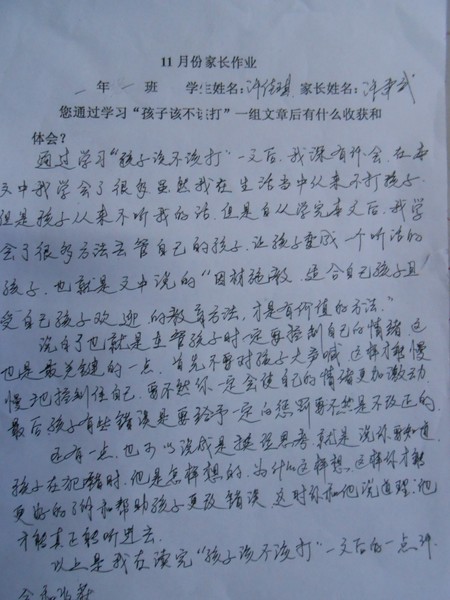 11月份家长作业
一年一班 学生姓名:许佳 家长姓名:许
您通过学习“孩子该不该打”一组文章后有什么收获和
体会?
通过学习“孩子该不该打”一文后,我深有体会,在本
文中我学会了很多虽然我在生活当中从来不打孩子.
但是孩子从来不听我的话.但是自从学完本文后.我学
会了很多方法去管自己的孩子.让孩子变成一个听话的
孩子.也就是文中说的“因材施教,适合自己孩子且
受自己孩子欢迎的教育方法,才是有价值的方法。”
说白了也就是在管孩子时一定要控制自己的情绪 这
也是最关键的一点.首先不要对孩子大声喊 这样才能慢
慢地控制住自己.要不然你一定会使自己的情绪更加激动.
最后孩子有些错误是要给予一定的惩罚要不然是不改正的.
还有一点.也可以说成是换位思考.就是说你要知道
孩子在犯错时.他是怎样想的.为什么这样想.这样你才能
更好的了解和帮助孩子更改错误 这时你和他说道理.他
才能真正能听进去.
以上是我在读完“孩子该不该打”一文后的一点体
会和